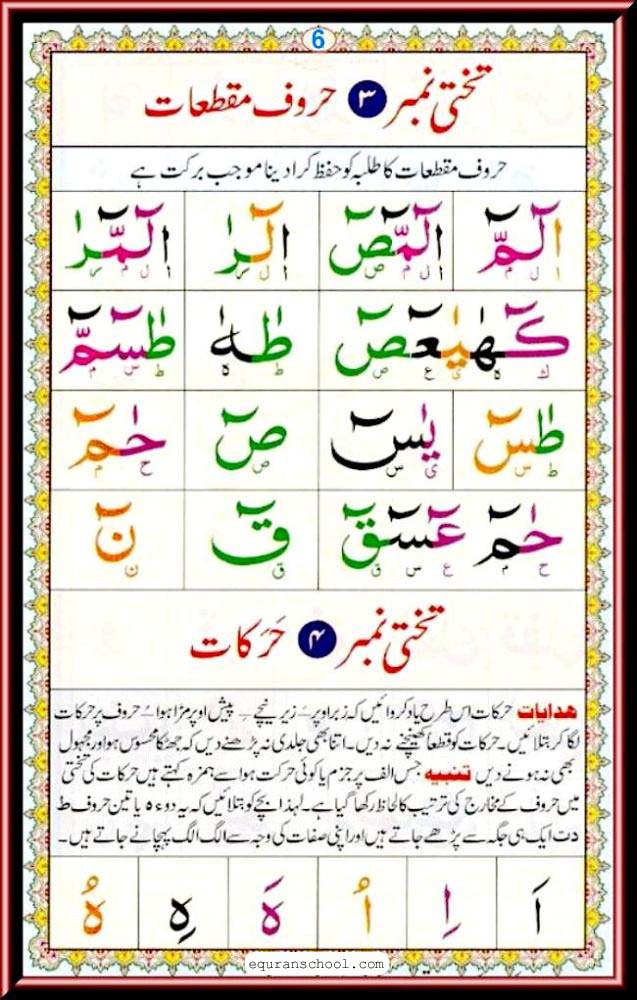 6
تختی نمبر ۳ حروف مقطعات
حروف مقطعات کا طلبہ کو حفظ کرا دینا موجب برکت ہے
الٓمّٓ الٓمّٓصٓ الٓرٰ الٓمّٓرٰ
ا ل م ا ل م ص ا ل ر ا ل م ر
كٓهٰيٰعٓصٓ طٰهٰ طٰسٓمّٓ
ك ه ی ع ص ط ه ط س م
طٰسٓ يٰسٓ صٓ حٰمٓ
ط س ی س ص ح م
حٰمٓ عٓسٓقٓ قٓ نٓ
ح م ع س ق ق ن
تختی نمبر ۴ حَرَکات
ھدایات حرکات اس طرح یاد کروائیں کہ زبر اوپر ـَ زیر نیچے ـِ پیش اوپر مڑا ہوا ـُ حروف پر حرکات
لگا کر بتلائیں۔ حرکات کو قطعاً کھینچنے نہ دیں۔ اتنا بھی جلدی نہ پڑھنے دیں کہ جھٹکا محسوس ہو اور مجہول
بھی نہ ہونے دیں تنبیہ جس الف پر جزم یا کوئی حرکت ہو اسے ہمزہ کہتے ہیں حرکات کی تختی
میں حروف کے مخارج کی ترتیب کا لحاظ رکھا گیا ہے۔ لہذا بچے کو بتلائیں کہ یہ دو ء ہ یا تین حروف ط
د ت ایک ہی جگہ سے پڑھے جاتے ہیں اور اپنی صفات کی وجہ سے الگ الگ پہچانے جاتے ہیں۔
اَ اِ اُ هَ هِ هُ
equranschool.com